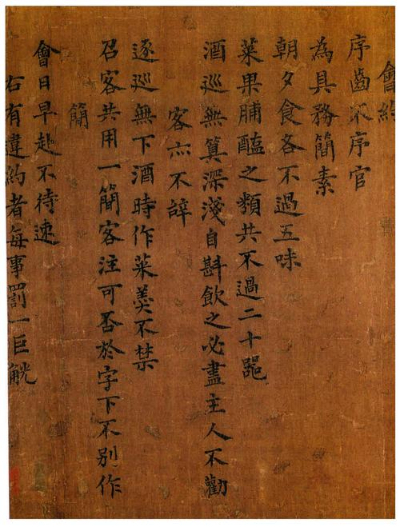 會約
序齒不序官
為具務簡素
朝夕食各不過五味
菜果脯醢之類共不過二十器
酒巡無算深淺自斟飲之必盡主人不勸
客亦不辭
逐巡無下酒時作菜羹不禁
召客共用一簡客注可否於字下不別作
簡
會日早赴不待速
右有違約者每事罰一巨觥